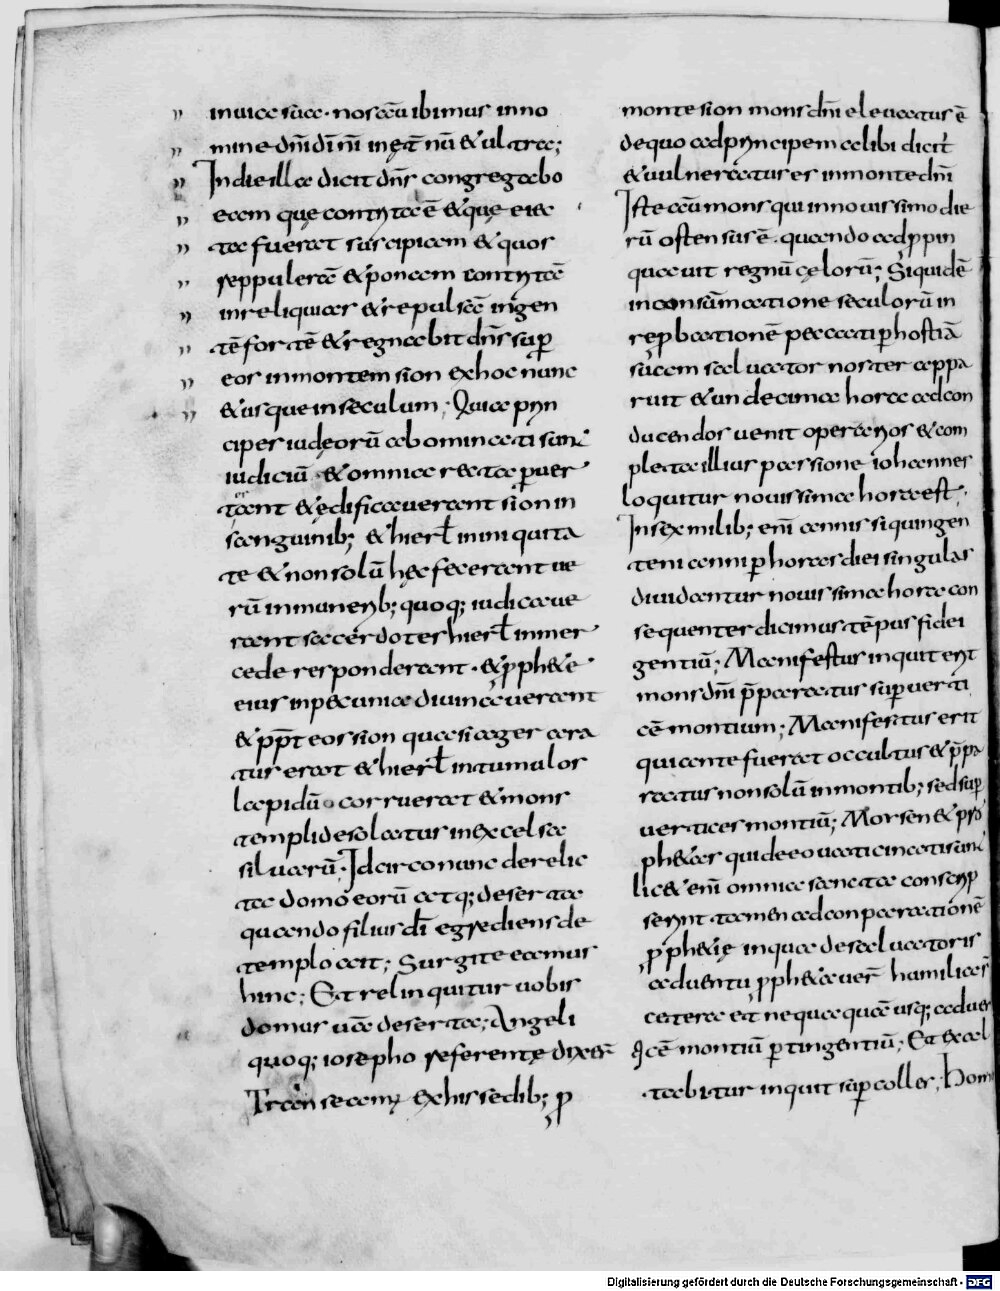 inuia sua · nos aũ ibimus inno
mine dñi dī nr̄i in ęt̄nũ & ultra;
In die illa dicit dñs congregabo
eam quę contrita ē & quę eiec
ta fuerat suscipiam & quos
reppulerā & ponam contritā
in reliquias & repulsā in gen
tē fortē & regnabit dñs sup̱
eos in montem sion ex hoc nunc
& usque in seculum; Quia prin
cipes iudęorũ abominati sunt
iudiciũ & omnia recta p̱uer
terant & ędificauerant sion in
sanguinib; & hierł in iniquita
te & non solũ hęc fecerant ue
rũ in munerib; quoq; iudicaue
rant sacerdotes hierł in mer
cede responderant · & p̱ph&ę
eius in pecunia diuinauerant
& pp̄t eos sion quasi ager ara
tus erat & hierł in tumulos
lapidũ corruerat & mons
templi desolatus in excelsa
siluarũ · Idcirco nunc derelic
ta domo eorũ atq; deserta
quando filius dī egrediens de
templo ait; Surgite eamus
hinc; Et relinquitur uobis
domus ur̄a deserta; Angeli
quoq; iosepho referente dixer̄
Transeamus ex his sedib; p̱
monte sion mons dñi eleuatus ē
de quo ad principem celibi dicit̄
& uulneratus es in monte dñi
Iste aũ mons qui in nouissimo die
rũ ostensus ē · quando adp̱pin
quauit regnũ cęlorũ; Siquidē
in consũmatione seculorũ in
rep̱bationē peccati p̱ hostiā
suam saluator noster appa
ruit & undecima hora ad con
ducendos uenit operarios & com
pleta illius passione iohannes
loquitur nouissima hora est;
In sex milib; enī annis si quingen
teni anni p̱ horas diei singulas
diuidantur nouissima hora con
sequenter dicimus tēpus fidei
gentiũ; Manifestus inquit erit
mons dñi p̄paratus sup̱ uerti
cē montium; Manifestus erit
qui ante fuerat occultus & p̄pa
ratus non solũ in montib; sed sup̱
uertices montiũ; Morsen & pro
ph&as qui de eo uaticinati sunt
lic& enī omnia sancta conscrip
serint tamen ad conparationē
p̱ph&ię in qua de saluatoris
aduentu p̱ph&auer̄ humilia s̄
cetera et nequaquā usq; ad uer
ticē montiũ p̱tingentiũ; Et exal
tabitur inquit sup̱ colles; Hom
Digitalisierung gefördert durch die Deutsche Forschungsgemeinschaft - DFG